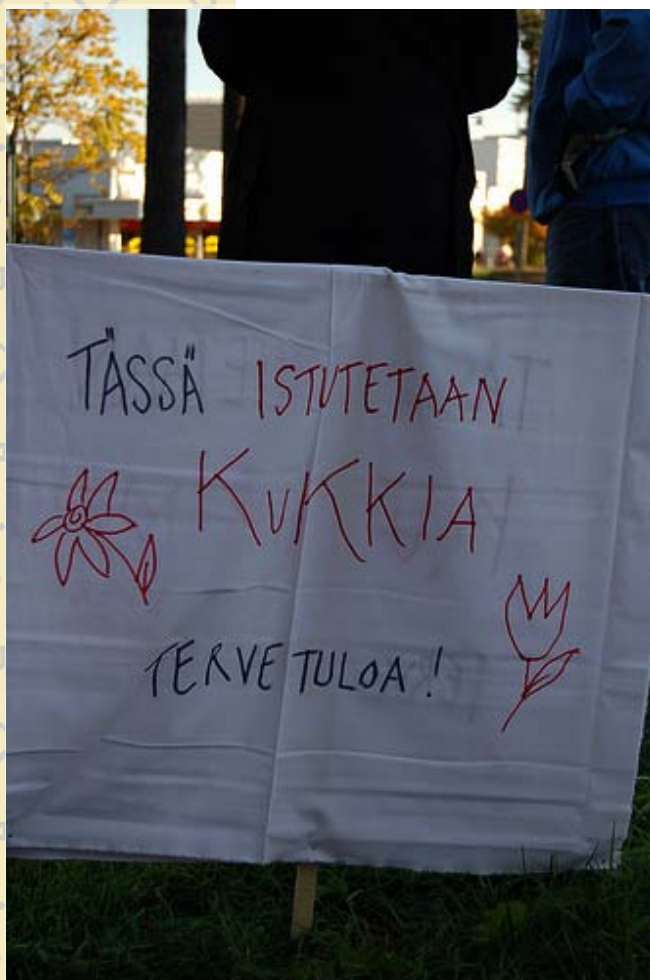 TÄSSÄ ISTUTETAAN
KUKKIA
TERVETULOA!